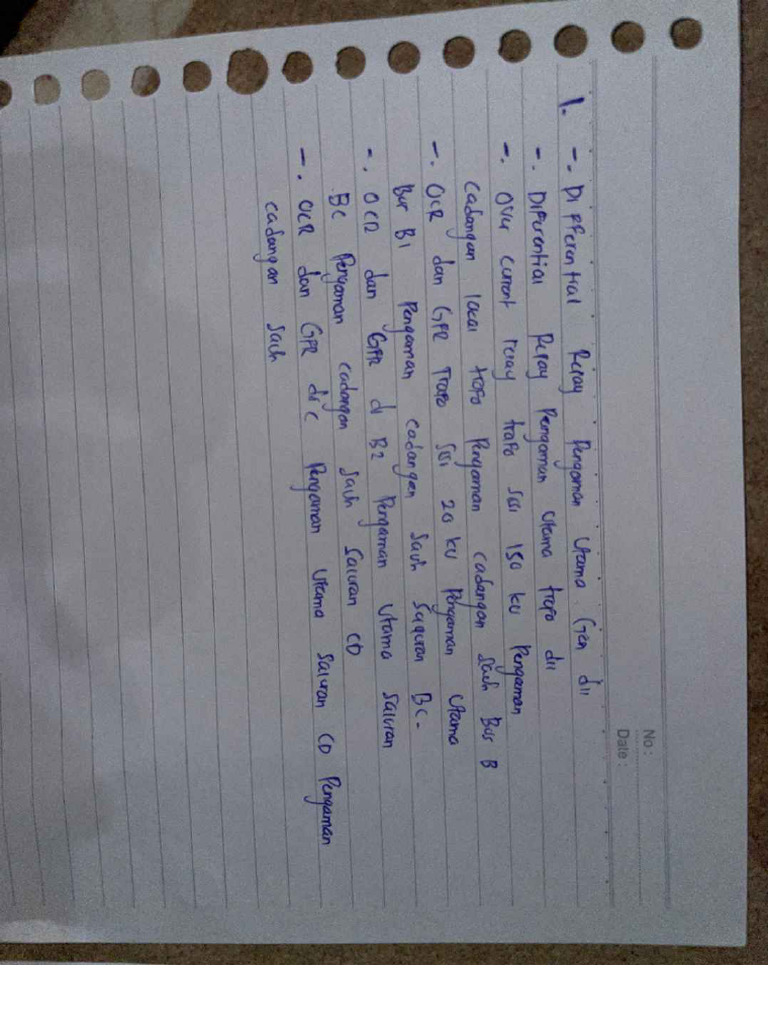 No :
Date :
1. -. Differential Relay Pengaman Utama Gen dll
-. Diferential Relay Pengaman Utama trafo dll
-. Over current relay trafo sisi 150 kV Pengaman
cadangan lokal trafo Pengaman cadangan Jauh Bus B
-. OCR dan GFR Trafo sisi 20 kV Pengaman Utama
Bus B1 Pengaman cadangan Jauh Saluran BC-
-. OCR dan GFR di B2 Pengaman Utama Saluran
BC Pengaman cadangan Jauh Saluran CD
-. OCR dan GFR di C Pengaman Utama Saluran CD Pengaman
cadangan Jauh